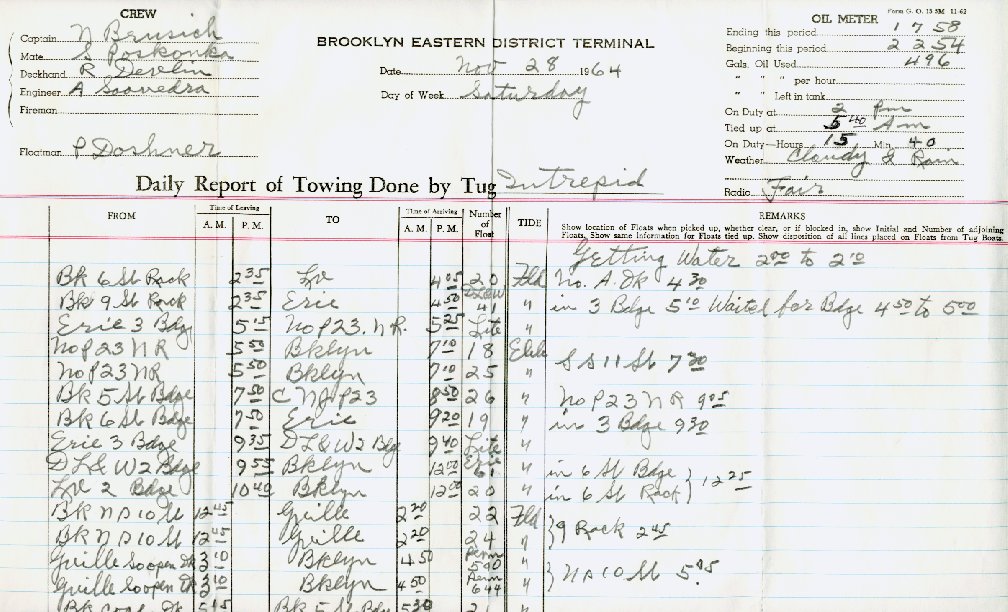 Form G. O. 13 5M 11-62
CREW
Captain N Brusich
Mate S Poskonka
Deckhand R Devlin
Engineer A Saavedra
Fireman
Floatman P Doshner
BROOKLYN EASTERN DISTRICT TERMINAL
Date Nov 28 1964
Day of Week Saturday
OIL METER
Ending this period 1758
Beginning this period 2254
Gals. Oil Used 496
" " " per hour
" " Left in tank
On Duty at 2 Pm
Tied up at 5 40 Am
On Duty—Hours 15 Min. 40
Weather Cloudy & Rain
Radio Fair
Daily Report of Towing Done by Tug Intrepid
FROM Time of Leaving A. M. P. M. TO Time of Arriving A. M. P. M. Number of Float TIDE REMARKS
Show location of Floats when picked up, whether clear, or if blocked in, show Initial and Number of adjoining
Floats. Show same information for Floats tied up. Show disposition of all lines placed on Floats from Tug Boats.
Getting Water 2 00 to 2 10
Bk 6 St Rack 2 35 4 05 20 Fld No. A. Dk 4 30
Bk 9 St Rack 2 35 Erie 4 50 DL&W 41 " in 3 Bdge 5 10 Waited for Bdge 4 50 to 5 00
Erie 3 Bdg 5 15 No P 23. N.R. 5 25 Lite "
No P 23 N R 5 50 Bklyn 7 10 18 S S 11 St 7 30
No P 23 N R 5 50 Bklyn 7 10 25 "
Bk 5 St Bdge 7 50 C N J P 23 8 50 26 " No P 23 N R 9 05
Bk 6 St Bdge 7 50 Erie 9 20 19 " in 3 Bdge 9 30
Erie 3 Bdge 9 35 D L & W 2 Bdg 9 40 Lite "
D L & W 2 Bdge 9 55 Bklyn 12 00 Erie 61 " in 6 St Bdge
2 Bdge 10 40 Bklyn 12 00 20 " in 6 St Rack } 12 25
Bk N S 10 St 12 45 Gville 2 20 22 Fld
Bk N S 10 St 12 45 Gville 2 20 24 " } 9 Rack 2 45
Gville So open Dk 3 10 Bklyn 4 50 Penn 590 "
Gville So open Dk 3 10 Bklyn 4 50 Penn 644 " } N S 10 St 5 05
Bk 5 15 Bk 5 St Bdg 5 30 21 "